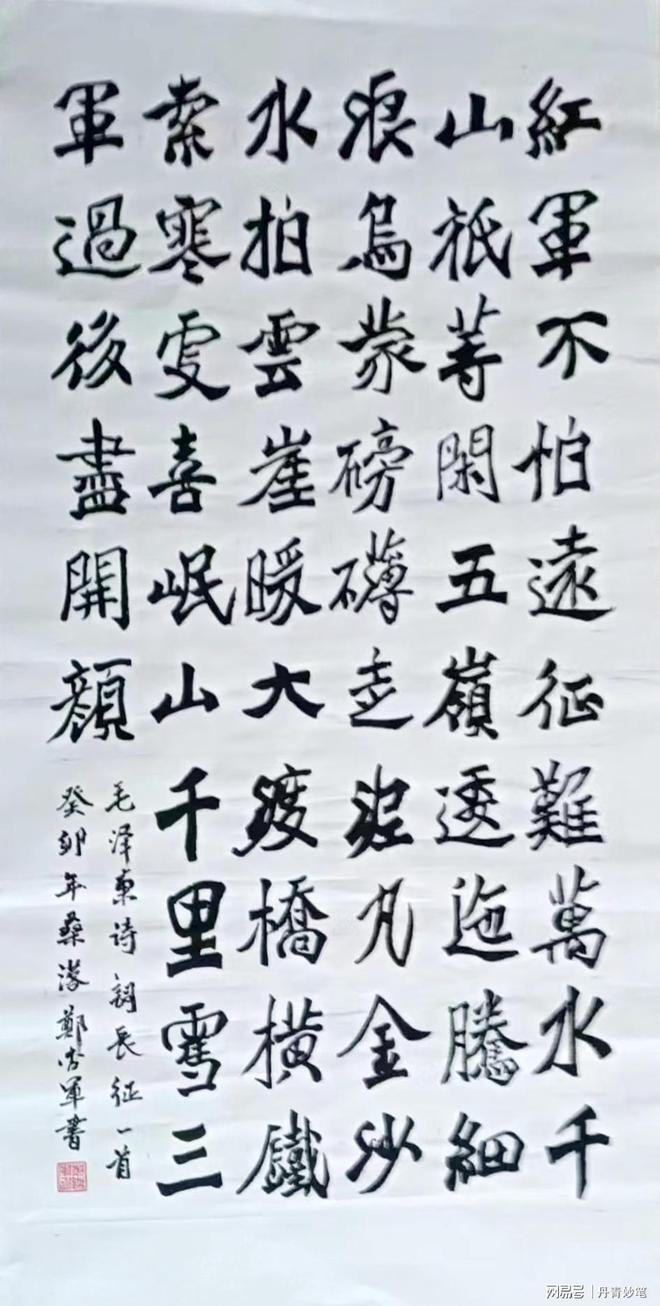 紅軍不怕遠征難萬水千
山祇等閑五嶺逶迤騰細
浪烏蒙磅礴走泥丸金沙
水拍雲崖暖大渡橋橫鐵
索寒更喜岷山千里雪三
軍過後盡開顏
毛泽東诗詞長征一首
癸卯年桑濮鄭古軍書
网易号 | 丹青妙笔